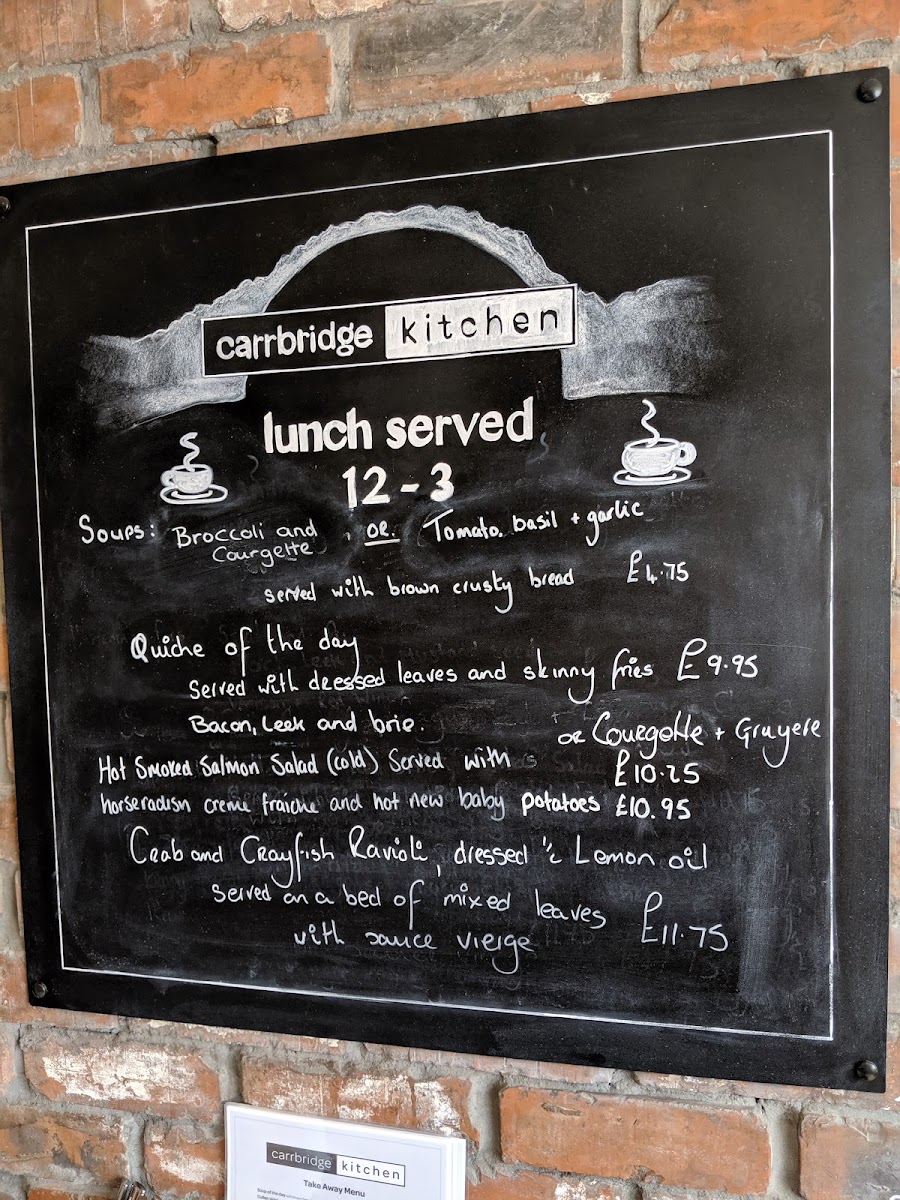 carrbridge kitchen
lunch served
12 - 3
Soups: Broccoli and Courgette, or. Tomato, basil + garlic
served with brown crusty bread £4.75
Quiche of the day
Served with dressed leaves and skinny fries £9.95
Bacon, Leek and brie. or Courgette + Gruyere
Hot Smoked Salmon Salad (cold) Served with £10.25
horseradish creme fraiche and hot new baby potatoes £10.95
Crab and Crayfish Ravioli, dressed in Lemon oil
Served on a bed of mixed leaves £11.75
with sauce vierge
carrbridge kitchen
Take Away Menu
Soup of the day